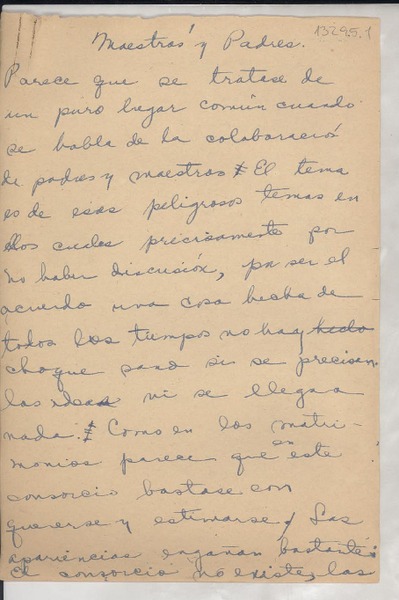 13295.1
Maestros y Padres.
Parece que se tratase de
un puro lugar común cuando
se habla de la colaboració
de padres y maestros ≠ El tema
es de esos peligrosos temas en
los cuales precisamente por
no haber discusión, pr ser el
acuerdo una cosa hecha de
todos los tiempos no hay hecho
choque sano si se precisan
las ideas ni se llega a
nada. ≠ Como en los matri-
monios parece que en este
consorcio bastase con
quererse y estimarse. Las
apariencias engañan bastante:
El consorcio no existe, las